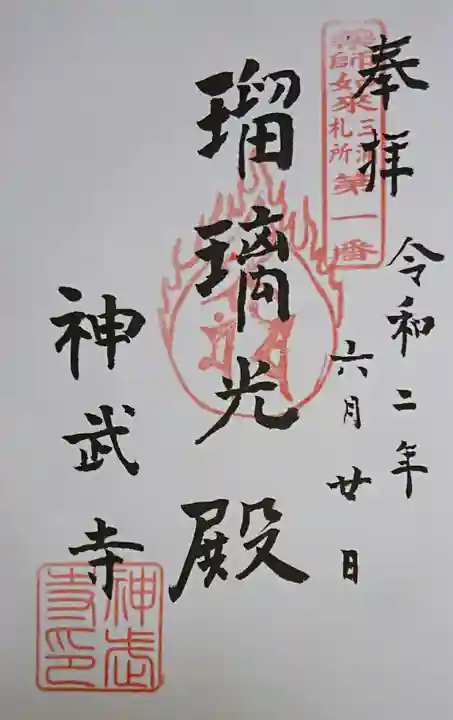 奉拝
薬師如来
三浦
札所
第一番
令和二年
六月廿日
瑠璃光殿
神武寺
神武
寺印